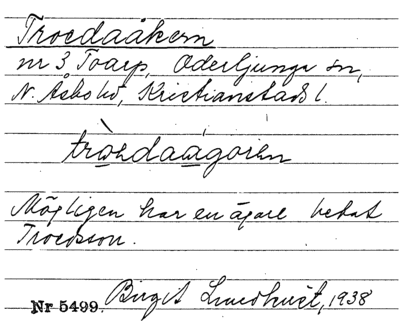 Troedaåkern
nr 3 Toarp, Oderljunga sn,
N. Åsbo hd, Kristianstads l.
Möjligen har en ägare hetat
Troedsson.
Nr 5499. Birgit Lundkvist, 1938